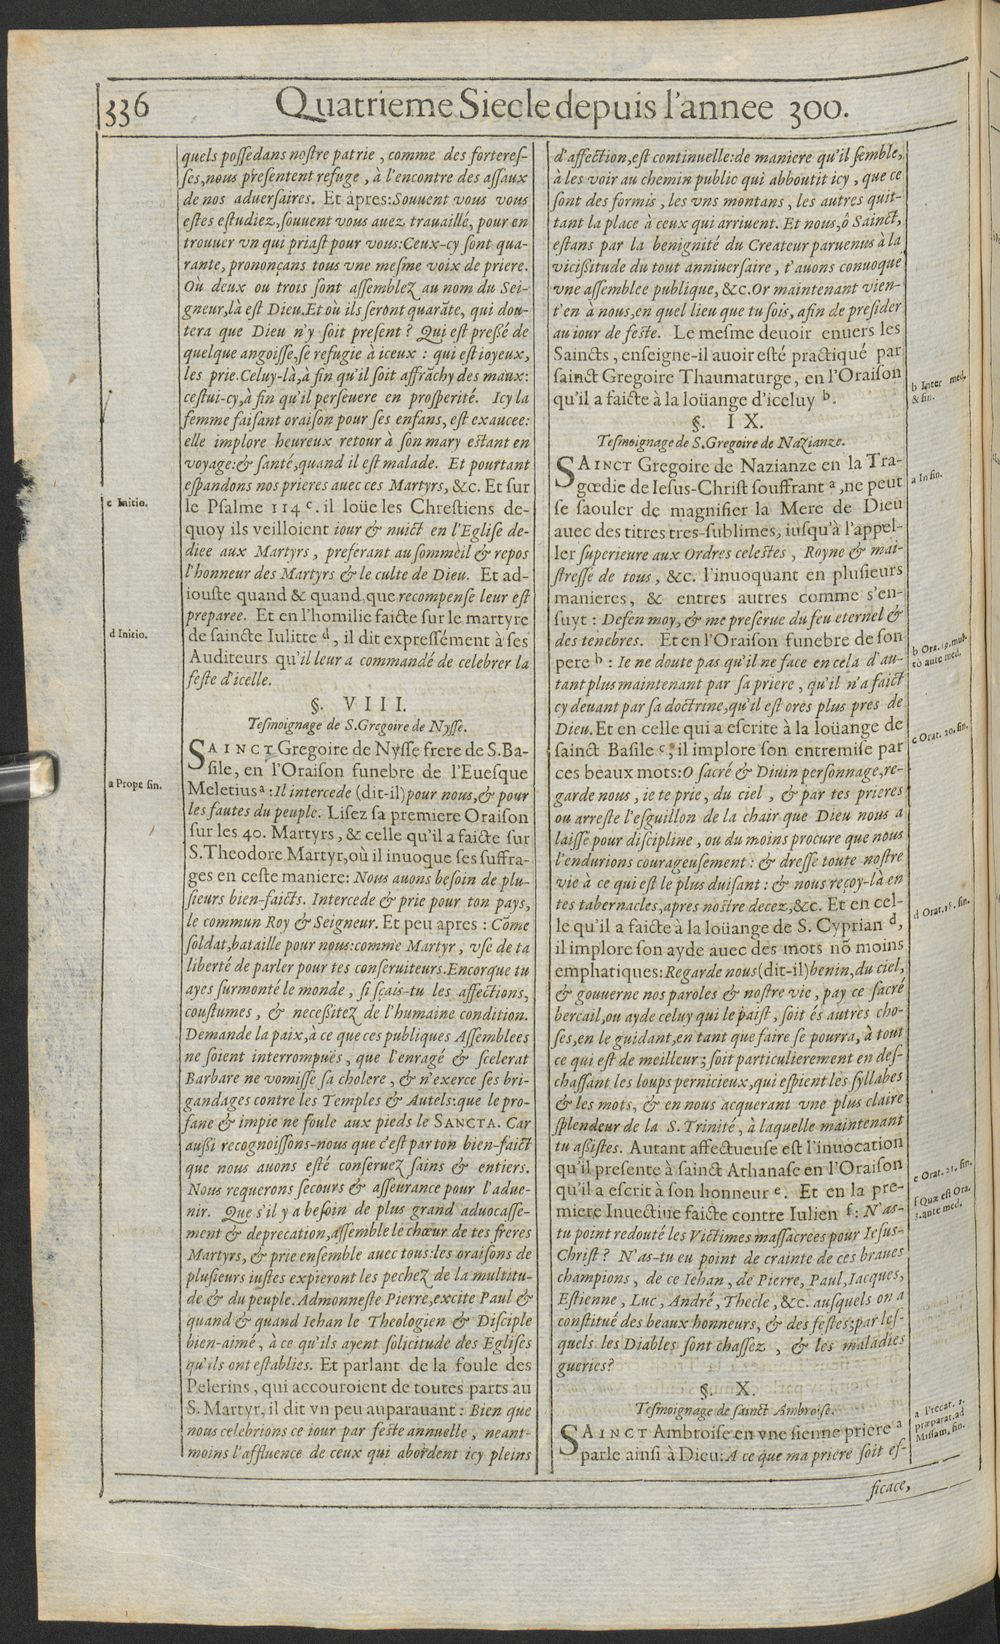 336
Quatrieme Siecle depuis l'annee 300.
quels possedans nostre patrie, comme des forteres-
ses, nous presentent refuge, à l'encontre des assaux
de nos aduersaires. Et apres: Souuent vous vous
estes estudiez, souuent vous auez trauaillé, pour en
trouuer vn qui priast pour vous: Ceux-cy sont qua-
rante, prononçans tous vne mesme voix de priere.
Où deux ou trois sont assemblez au nom du Sei-
gneur, là est Dieu. Et où ils seront quarāte, qui dou-
tera que Dieu n'y soit present? Qui est preßé de
quelque angoisse, se refugie à iceux: qui est ioyeux,
les prie. Celuy-là, à fin qu'il soit affrāchy des maux:
cestui-cy, à fin qu'il perseuere en prosperité. Icy la
femme faisant oraison pour ses enfans, est exaucee:
elle implore heureux retour à son mary estant en
voyage: & santé, quand il est malade. Et pourtant
espandons nos prieres auec ces Martyrs, &c. Et sur
le Psalme 114 c. il loüe les Chrestiens de-
quoy ils veilloient iour & nuict en l'Eglise de-
diee aux Martyrs, preferant au sommeil & repos
l'honneur des Martyrs & le culte de Dieu. Et ad-
iouste quand & quand, que recompense leur est
preparee. Et en l'homilie faicte sur le martyre
de saincte Iulitte d, il dit expressément à ses
Auditeurs qu'il leur a commandé de celebrer la
feste d'icelle.
c Initio.
d Initio.
§. VIII.
Tesmoignage de S. Gregoire de Nysse.
SAINCT Gregoire de Nysse frere de S. Ba-
sile, en l'Oraison funebre de l'Euesque
Meletius a: Il intercede (dit-il) pour nous, & pour
les fautes du peuple. Lisez sa premiere Oraison
sur les 40. Martyrs, & celle qu'il a faicte sur
S. Theodore Martyr, où il inuoque ses suffra-
ges en ceste maniere: Nous auons besoin de plu-
sieurs bien-faicts. Intercede & prie pour ton pays,
le commun Roy & Seigneur. Et peu apres: Cōme
soldat, bataille pour nous: comme Martyr, vse de ta
liberté de parler pour tes conseruiteurs. Encor que tu
ayes surmonté le monde, si sçais-tu les affections,
coustumes, & neceßitez de l'humaine condition.
Demande la paix, à ce que ces publiques Assemblees
ne soient interrompuës, que l'enragé & scelerat
Barbare ne vomisse sa cholere, & n'exerce ses bri-
gandages contre les Temples & Autels: que le pro-
fane & impie ne foule aux pieds le SANCTA. Car
außi recognoissons-nous que c'est par ton bien-faict
que nous auons esté conseruez sains & entiers.
Nous requerons secours & asseurance pour l'adue-
nir. Que s'il y a besoin de plus grand aduocasse-
ment & deprecation, assemble le chœur de tes freres
Martyrs, & prie ensemble auec tous: les oraisons de
plusieurs iustes expieront les pechez de la multitu-
de & du peuple. Admonneste Pierre, excite Paul &
quand & quand Iehan le Theologien & Disciple
bien-aimé, à ce qu'ils ayent solicitude des Eglises
qu'ils ont establies. Et parlant de la foule des
Pelerins, qui accouroient de toutes parts au
S. Martyr, il dit vn peu auparauant: Bien que
nous celebrions ce iour par feste annuelle, neant-
moins l'affluence de ceux qui abordent icy pleins
a Prope fin.
d'affection, est continuelle: de maniere qu'il semble,
à les voir au chemin public qui abboutit icy, que ce
sont des formis, les vns montans, les autres quit-
tant la place à ceux qui arriuent. Et nous, ô Sainct,
estans par la benignité du Createur paruenus à la
vicißitude du tout anniuersaire, t'auons conuoqué
vne assemblee publique, &c. Or maintenant vien-
t'en à nous, en quel lieu que tu sois, afin de presider
au iour de feste. Le mesme deuoir enuers les
Saincts, enseigne-il auoir esté practiqué par
sainct Gregoire Thaumaturge, en l'Oraison
qu'il a faicte à la loüange d'iceluy b.
b Inter med.
& fin.
§. IX.
Tesmoignage de S. Gregoire de Nazianze.
SAINCT Gregoire de Nazianze en la Tra-
gœdie de Iesus-Christ souffrant a, ne peut
se saouler de magnifier la Mere de Dieu
auec des titres tres-sublimes, iusqu'à l'appel-
ler superieure aux Ordres celestes, Royne & mai-
stresse de tous, &c. l'inuoquant en plusieurs
manieres, & entres autres comme s'en-
suyt: Defen moy, & me preserue du feu eternel &
des tenebres. Et en l'Oraison funebre de son
pere b: Ie ne doute pas qu'il ne face en cela d'au-
tant plus maintenant par sa priere, qu'il n'a faict
cy deuant par sa doctrine, qu'il est ores plus pres de
Dieu. Et en celle qui a escrite à la loüange de
sainct Basile c, il implore son entremise par
ces beaux mots: O sacré & Diuin personnage, re-
garde nous, ie te prie, du ciel, & par tes prieres
ou arreste l'esguillon de la chair que Dieu nous a
laissé pour discipline, ou du moins procure que nous
l'endurions courageusement: & dresse toute nostre
vie à ce qui est le plus duisant: & nous reçoy-là en
tes tabernacles, apres nostre decez, &c. Et en cel-
le qu'il a faicte à la loüange de S. Cyprian d,
il implore son ayde auec des mots nō moins
emphatiques: Regarde nous (dit-il) benin, du ciel,
& gouuerne nos paroles & nostre vie, pay ce sacré
bercail, ou ayde celuy qui le paist, soit és autres cho-
ses, en le guidant, en tant que faire se pourra, à tout
ce qui est de meilleur; soit particulierement en des-
chassant les loups pernicieux, qui espient les syllabes
& les mots, & en nous acquerant vne plus claire
splendeur de la S. Trinité, à laquelle maintenant
tu aßistes. Autant affectueuse est l'inuocation
qu'il presente à sainct Athanase en l'Oraison
qu'il a escrit à son honneur e. Et en la pre-
miere Inuectiue faicte contre Iulien f: N'as-
tu point redouté les Victimes massacrees pour Iesus-
Christ? N'as-tu eu point de crainte de ces braues
champions, de ce Iehan, de Pierre, Paul, Iacques,
Estienne, Luc, André, Thecle, &c. ausquels on a
constitué des beaux honneurs, & des festes; par les-
quels les Diables sont chassez, & les maladies
gueries?
a In fin.
b Ora. 19. mul-
tò ante med.
c Orat. 20. fin.
d Orat. 18. fin.
e Orat. 21. fin.
f Quæ est Ora.
3. ante med.
§. X.
Tesmoignage de sainct Ambroise.
SAINCT Ambroise en vne sienne priere a
parle ainsi à Dieu: A ce que ma priere soit ef-
a Precat. 2.
præparat. ad
Missam, fin.
ficace,